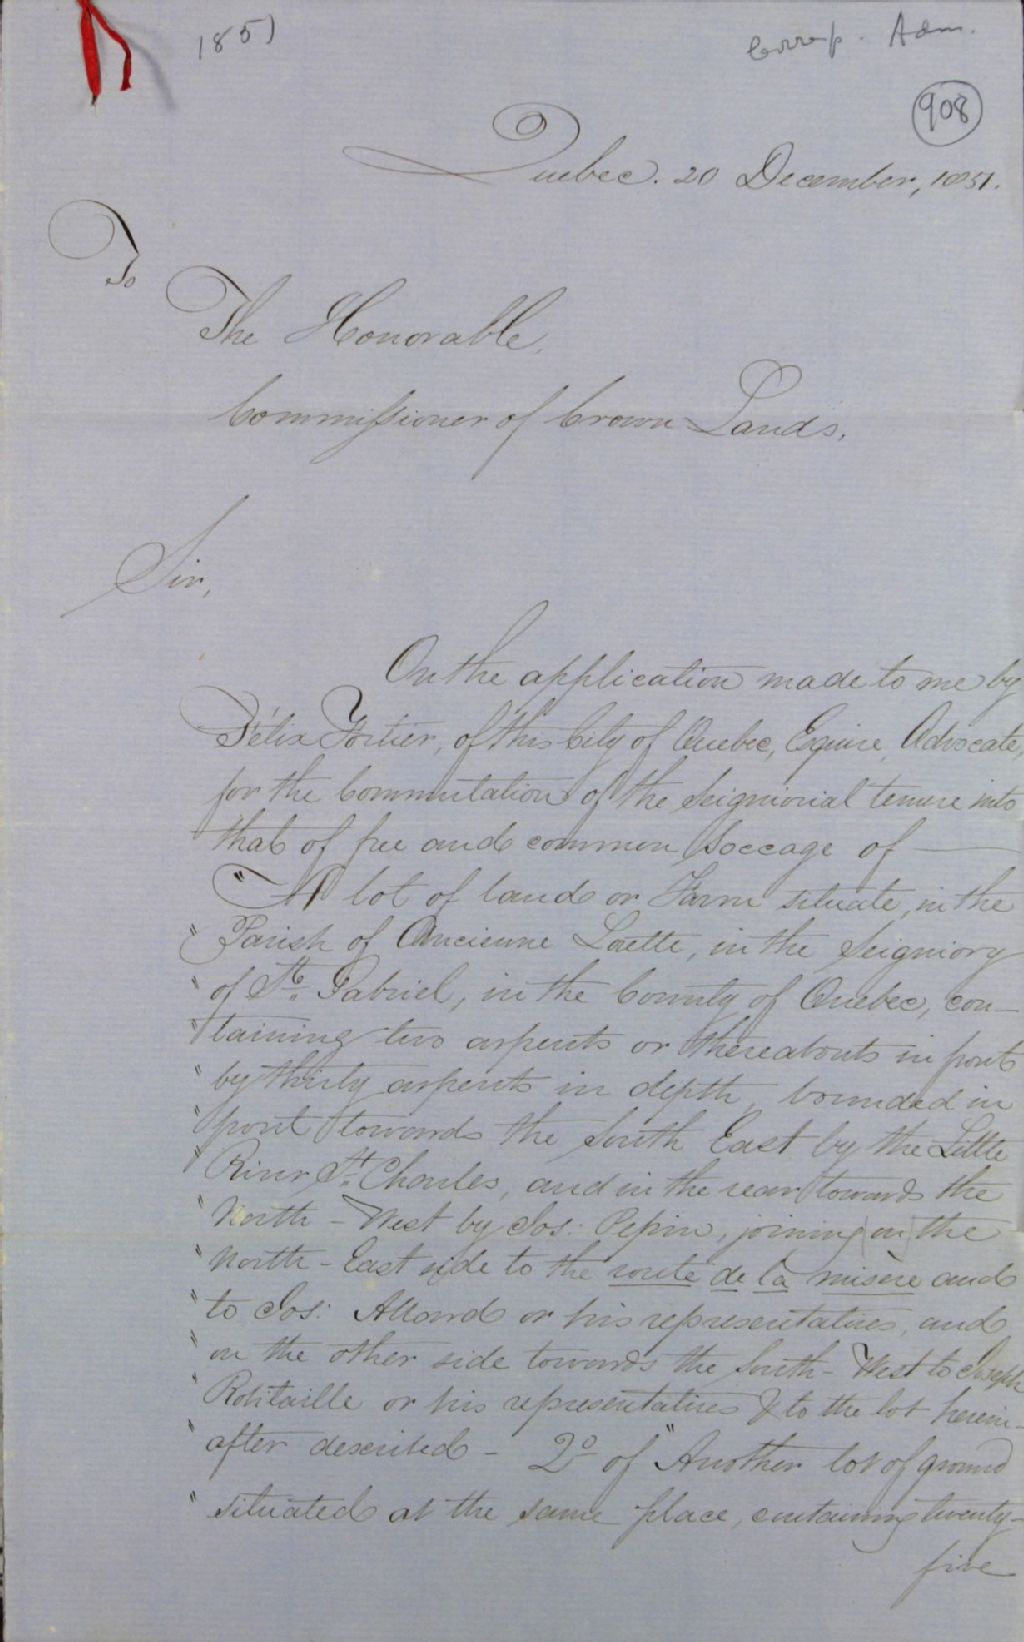 1851
Corresp. Adm.
908
Quebec. 20 December, 1851.
To
The Honorable,
Commissioner of Crown Lands.
Sir,
On the application made to me by
Félix Fortier, of this City of Quebec, Esquire, Advocate,
for the Commutation of the Seigniorial tenure into
that of free and common soccage of —
" A lot of land or Farm situate, in the
" Parish of Ancienne Lorette, in the Seigniory
" of St. Gabriel, in the County of Quebec, con-
" taining two arpents or thereabouts in front
" by thirty arpents in depth, bounded in
" front towards the South East by the Little
" River St. Charles, and in the rear towards the
" North - West by Jos: Pepin, joining on the
" North - East side to the route de la misère and
" to Jos: Allard or his representatives, and
" on the other side towards the South - West to Joseph
" Robitaille or his representatives & to the lot herein-
" after described - 2o of "Another lot of ground
" situated at the same place, containing twenty-
five